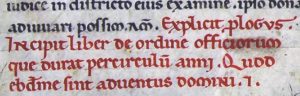 iudice in districto eius examine. ipso dona
adiuuari possim. am̄. Explicit plogus.
Incipit liber de ordine officiorum
que durat percirculū anni. Quod
ebdōme sint aduentus domini. I.